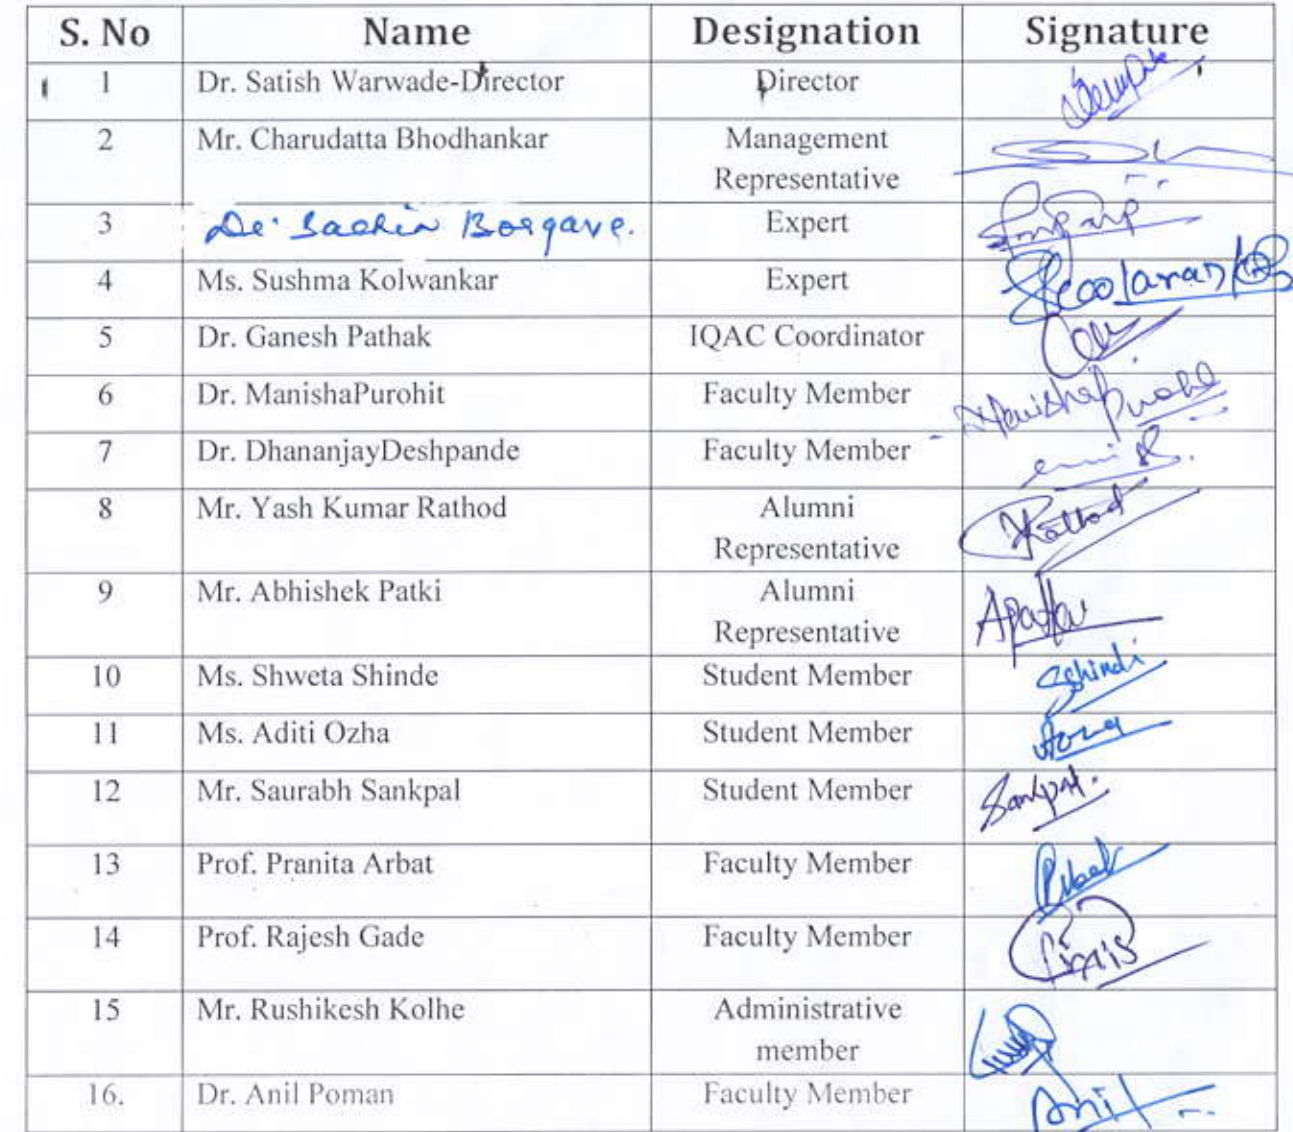 S. No Name Designation Signature
1 Dr. Satish Warwade-Director Director
2 Mr. Charudatta Bhodhankar Management
Representative
3 Dr. Sachin Borgave. Expert
4 Ms. Sushma Kolwankar Expert
5 Dr. Ganesh Pathak IQAC Coordinator
6 Dr. ManishaPurohit Faculty Member
7 Dr. DhananjayDeshpande Faculty Member
8 Mr. Yash Kumar Rathod Alumni Rathod
Representative
9 Mr. Abhishek Patki Alumni
Representative
10 Ms. Shweta Shinde Student Member
11 Ms. Aditi Ozha Student Member
12 Mr. Saurabh Sankpal Student Member Sankpal.
13 Prof. Pranita Arbat Faculty Member
14 Prof. Rajesh Gade Faculty Member
15 Mr. Rushikesh Kolhe Administrative
member
16. Dr. Anil Poman Faculty Member Anil